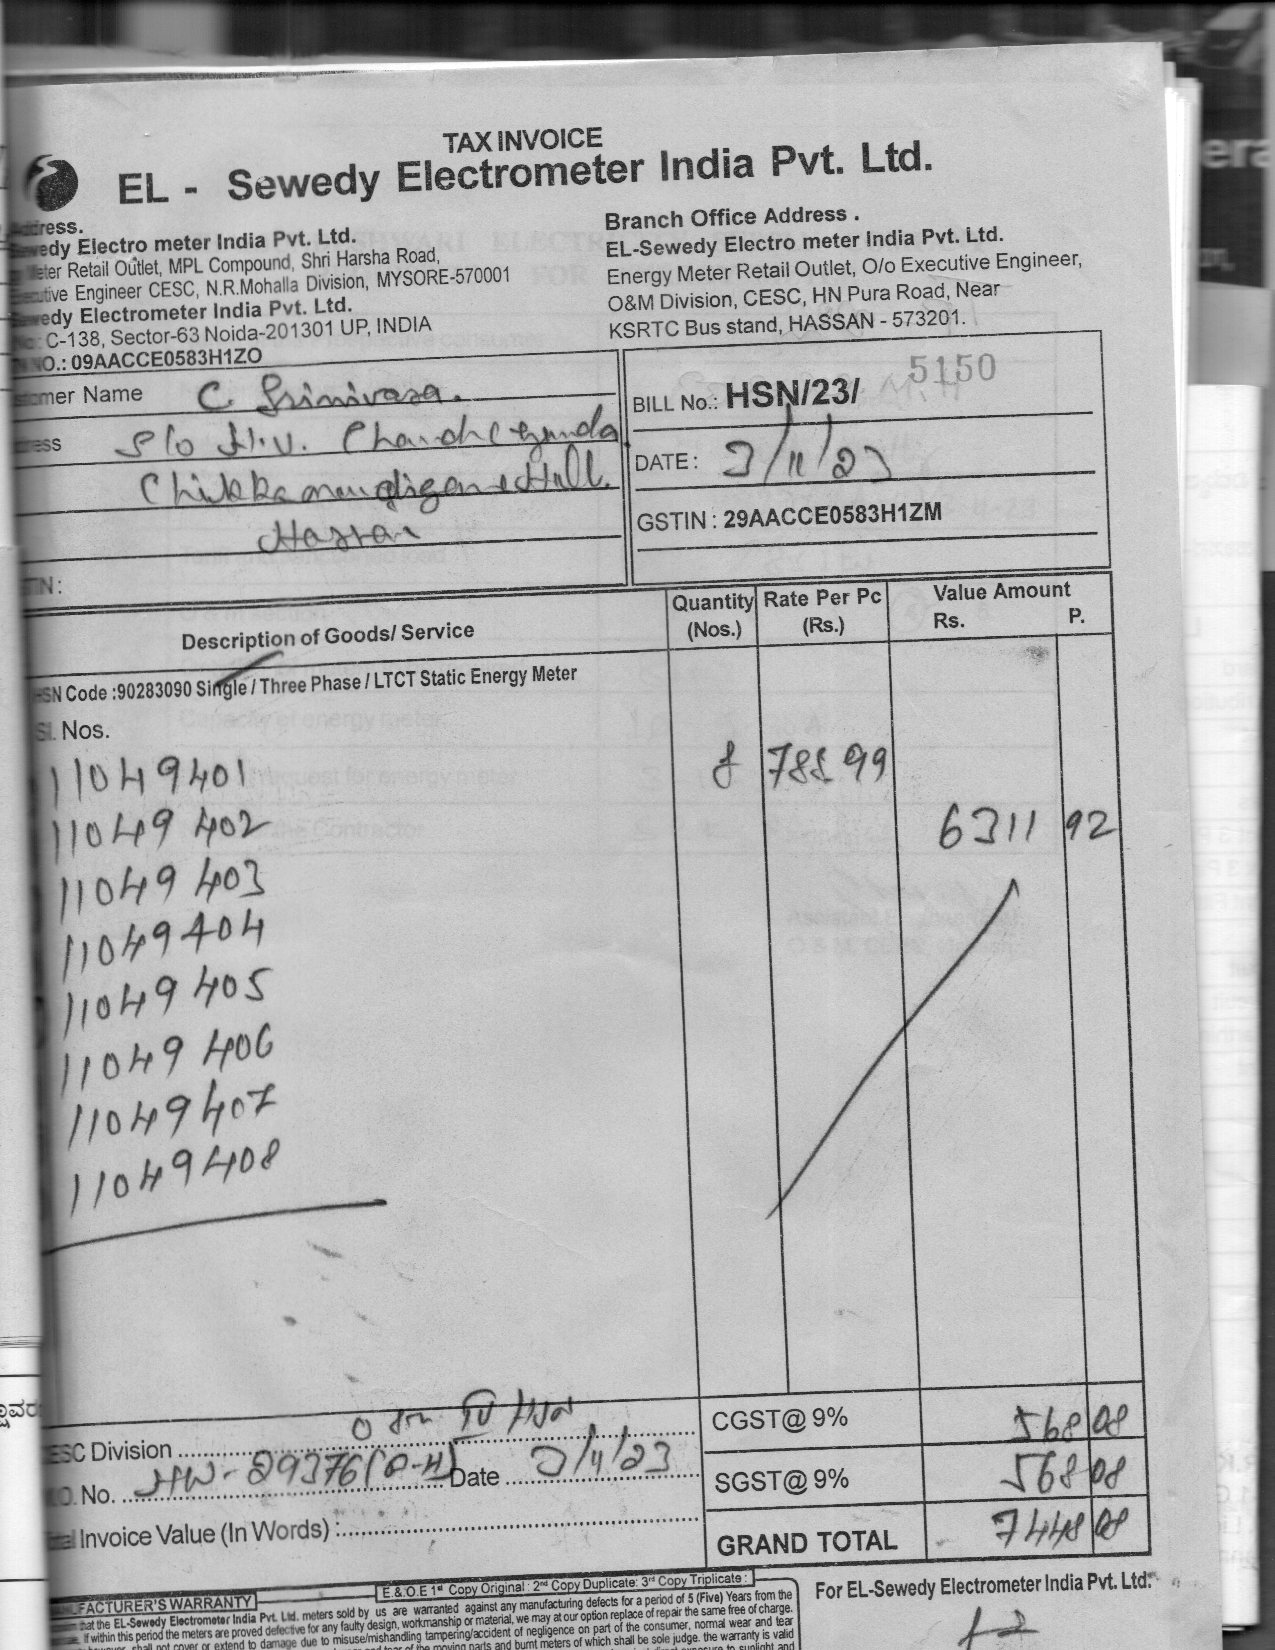 TAX INVOICE
EL - Sewedy Electrometer India Pvt. Ltd.
Address.
Sewedy Electro meter India Pvt. Ltd.
Meter Retail Outlet, MPL Compound, Shri Harsha Road,
Executive Engineer CESC, N.R.Mohalla Division, MYSORE-570001
Sewedy Electrometer India Pvt. Ltd.
C-138, Sector-63 Noida-201301 UP, INDIA
NO.: 09AACCE0583H1ZO
Branch Office Address .
EL-Sewedy Electro meter India Pvt. Ltd.
Energy Meter Retail Outlet, O/o Executive Engineer,
O&M Division, CESC, HN Pura Road, Near
KSRTC Bus stand, HASSAN - 573201.
mer Name C. Srinivasa.
ress S/o H.V.
Hassan
TIN :
BILL No.: HSN/23/ 5150
DATE : 3/11/23
GSTIN : 29AACCE0583H1ZM
Description of Goods/ Service Quantity (Nos.) Rate Per Pc (Rs.) Value Amount Rs. P.
HSN Code :90283090 Single / Three Phase / LTCT Static Energy Meter
Sl. Nos.
11049401 8 788 99
11049402 6311 92
11049403
11049404
11049405
11049406
11049407
11049408
CGST@ 9% 568 08
ESC Division HSN
SGST@ 9% 568 08
O. No. 29376 Date 3/11/23
GRAND TOTAL 7448 08
Total Invoice Value (In Words) :
E & O.E 1st Copy Original : 2nd Copy Duplicate: 3rd Copy Triplicate :
MANUFACTURER'S WARRANTY
that the EL-Sewedy Electrometer India Pvt. Ltd. meters sold by us are warranted against any manufacturing defects for a period of 5 (Five) Years from the
If within this period the meters are proved defective for any faulty design, workmanship or material, we may at our option replace of repair the same free of charge.
shall not cover or extend to damage due to misuse/mishandling tampering/accident of negligence on part of the consumer, normal wear and tear
of the moving parts and burnt meters of which shall be sole judge. the warranty is valid
For EL-Sewedy Electrometer India Pvt. Ltd.